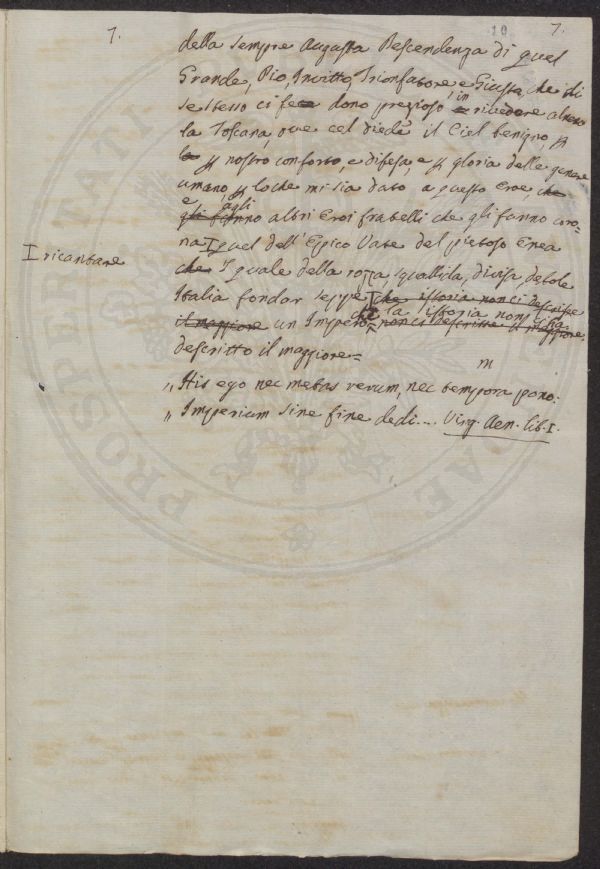 7.
10
7.
della sempre Augusta Descendenza di quel
Grande, Pio, Invitto, Trionfatore e Giusto, che di
se stesso ci fece dono prezioso in rivedere almeno
la Toscana, ove cel diede il Ciel benigno, p
la p nostro conforto, e difesa, e p gloria delle genere
umano, p loche mi sia dato a questo Eroe, che
e agli
gli fanno altri Eroi fratelli che gli fanno coro=
na I quel dell'Epico Vate del pietoso Enea
I ricantare
che I quale della rozza, squallida, divisa debole
Italia fondar seppe che istoria non ci descrisse
che la istoria non ci ha
il maggiore un Impero non ci descrisse il maggiore.
descritto il maggiore=
m
„ His ego nec metas rerum, nec tempora pono:
„ Imperium sine fine dedi.... Virg. Aen. lib. I.
PROSTET IN